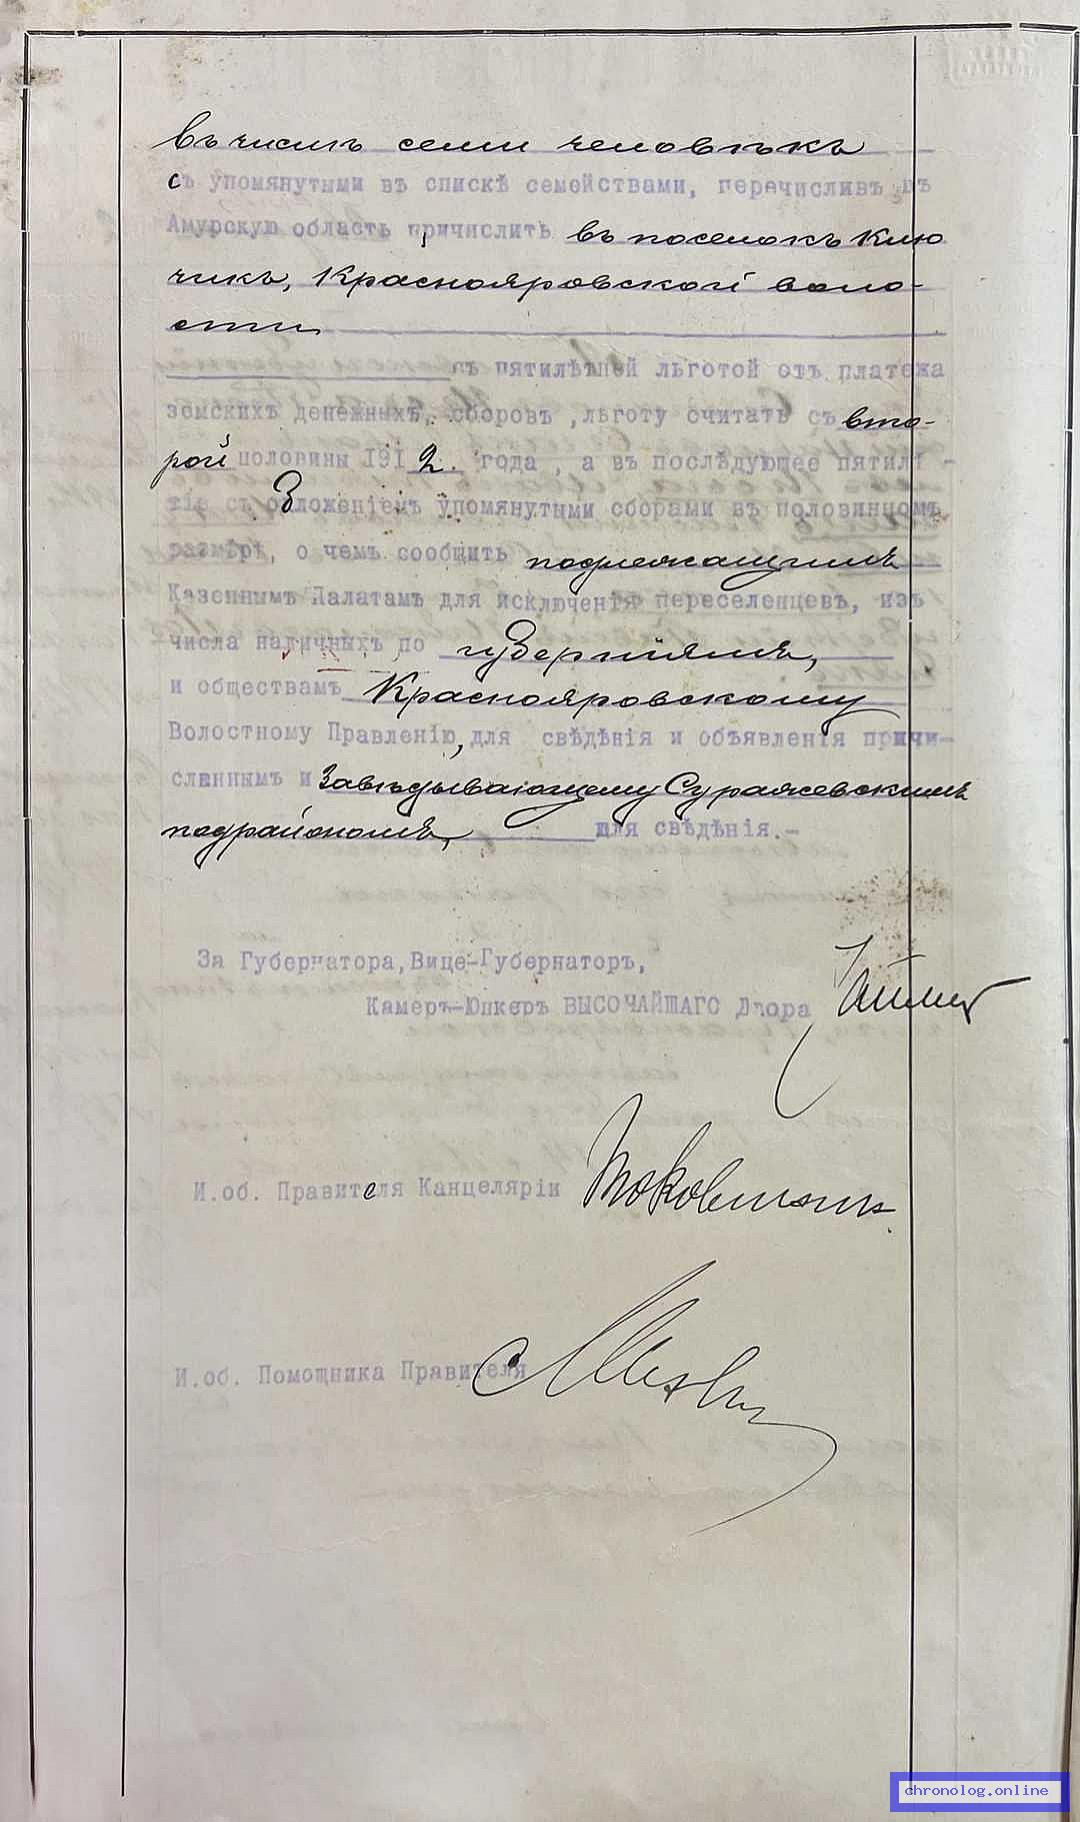 въ числѣ семи человѣкъ
съ упомянутыми въ спискѣ семействами, перечисливъ въ
Амурскую область причислить въ поселокъ Клю
чикъ, Краснояровской воло-
сти
съ пятилѣтней льготой отъ платежа
земскихъ денежныхъ сборовъ, льготу считать съ вто-
рой половины 1912. года, а въ послѣдующее пятилѣ-
тіе съ обложеніемъ упомянутыми сборами въ половинномъ
размѣрѣ, о чемъ сообщить подлежащимъ
Казеннымъ Палатамъ для исключенія переселенцевъ, изъ
числа наличныхъ по губерніямъ,
и обществамъ Краснояровскому
Волостному Правленію, для свѣдѣнія и объявленія причи-
сленнымъ и Завѣдывающему Суражевскимъ
подраіономъ, для свѣдѣнія.-
За Губернатора, Вице-Губернаторъ,
Камеръ-Юнкеръ ВЫСОЧАЙШАГО Двора
И.об. Правителя Канцеляріи
И.об. Помощника Правителя
chronolog.online